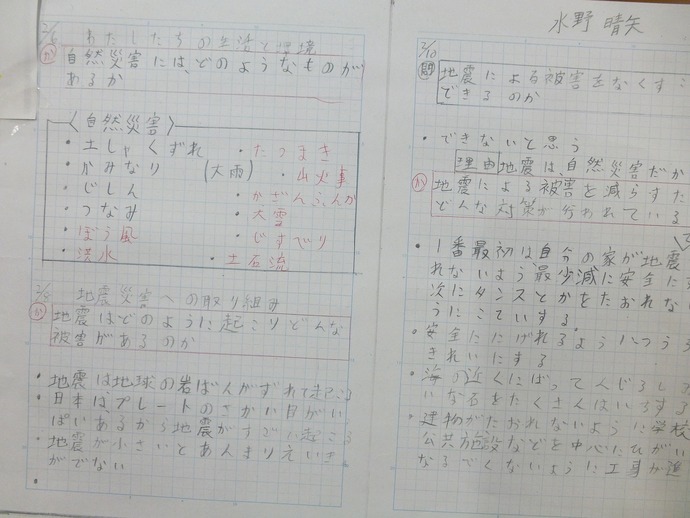 2/6 わたしたちの生活と環境
か 自然災害には、どのようなものが
あるか
<自然災害>
・土しゃくずれ ・たつまき
・かみなり (大雨) ・山火事
・じしん ・かざんふんか
・つなみ ・大雪
・ぼう風 ・じすべり
・洪水 ・土石流
2/8 地震災害への取り組み
か 地震はどのように起こりどんな
被害があるのか
・地震は地球の岩ばんがずれて起こる
・日本は、プレートのさかい目がい
ぱいあるから地震がすぐに起こる
・地震が小さいとあんまりえいき
がでない
水野 晴矢
2/10
問 地震による被害をなくすこ
できるのか
・できないと思う
理由 地震は、自然災害だか
か 地震による被害を減らすた
どんな対策が行われている
・1番最初は自分の家が地震
れないよう最少減に安全にす
次にタンスとかをたおれな
うにこていする。
・安全ににげれるよう
きれいにする
・海の近くには、
な石をたくさん
・建物がたおれないように学校
公共施設などを中心にひがい
なるでくないように工事が進